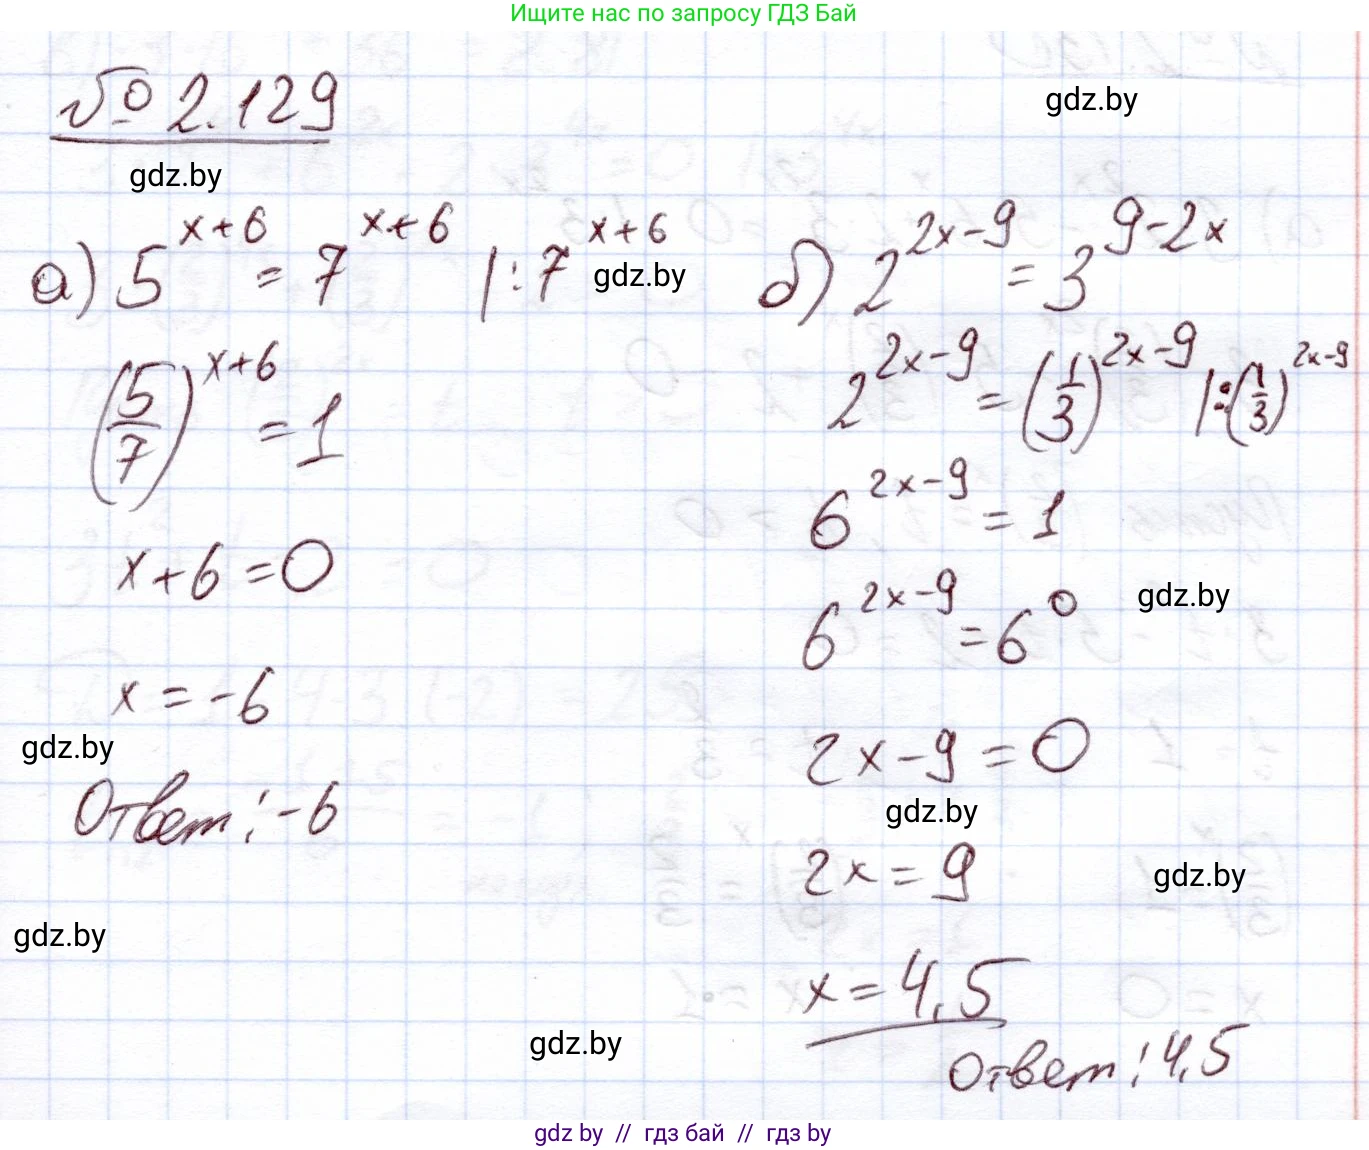 Ищите нас по запросу ГДЗ Бай
№ 2.129
gdz.by
gdz.by
а) 5^(x+6) = 7^(x+6) | : 7^(x+6)
gdz.by
(5/7)^(x+6) = 1
x+6=0
x = -6
gdz.by
Ответ: -6
gdz.by
б) 2^(2x-9) = 3^(9-2x)
2^(2x-9) = (1/3)^(2x-9) | : (1/3)^(2x-9)
6^(2x-9) = 1
6^(2x-9) = 6^0
gdz.by
2x-9 = 0
gdz.by
2x = 9
gdz.by
x = 4,5
gdz.by
Ответ: 4,5
gdz by // гдз бай // gdz by